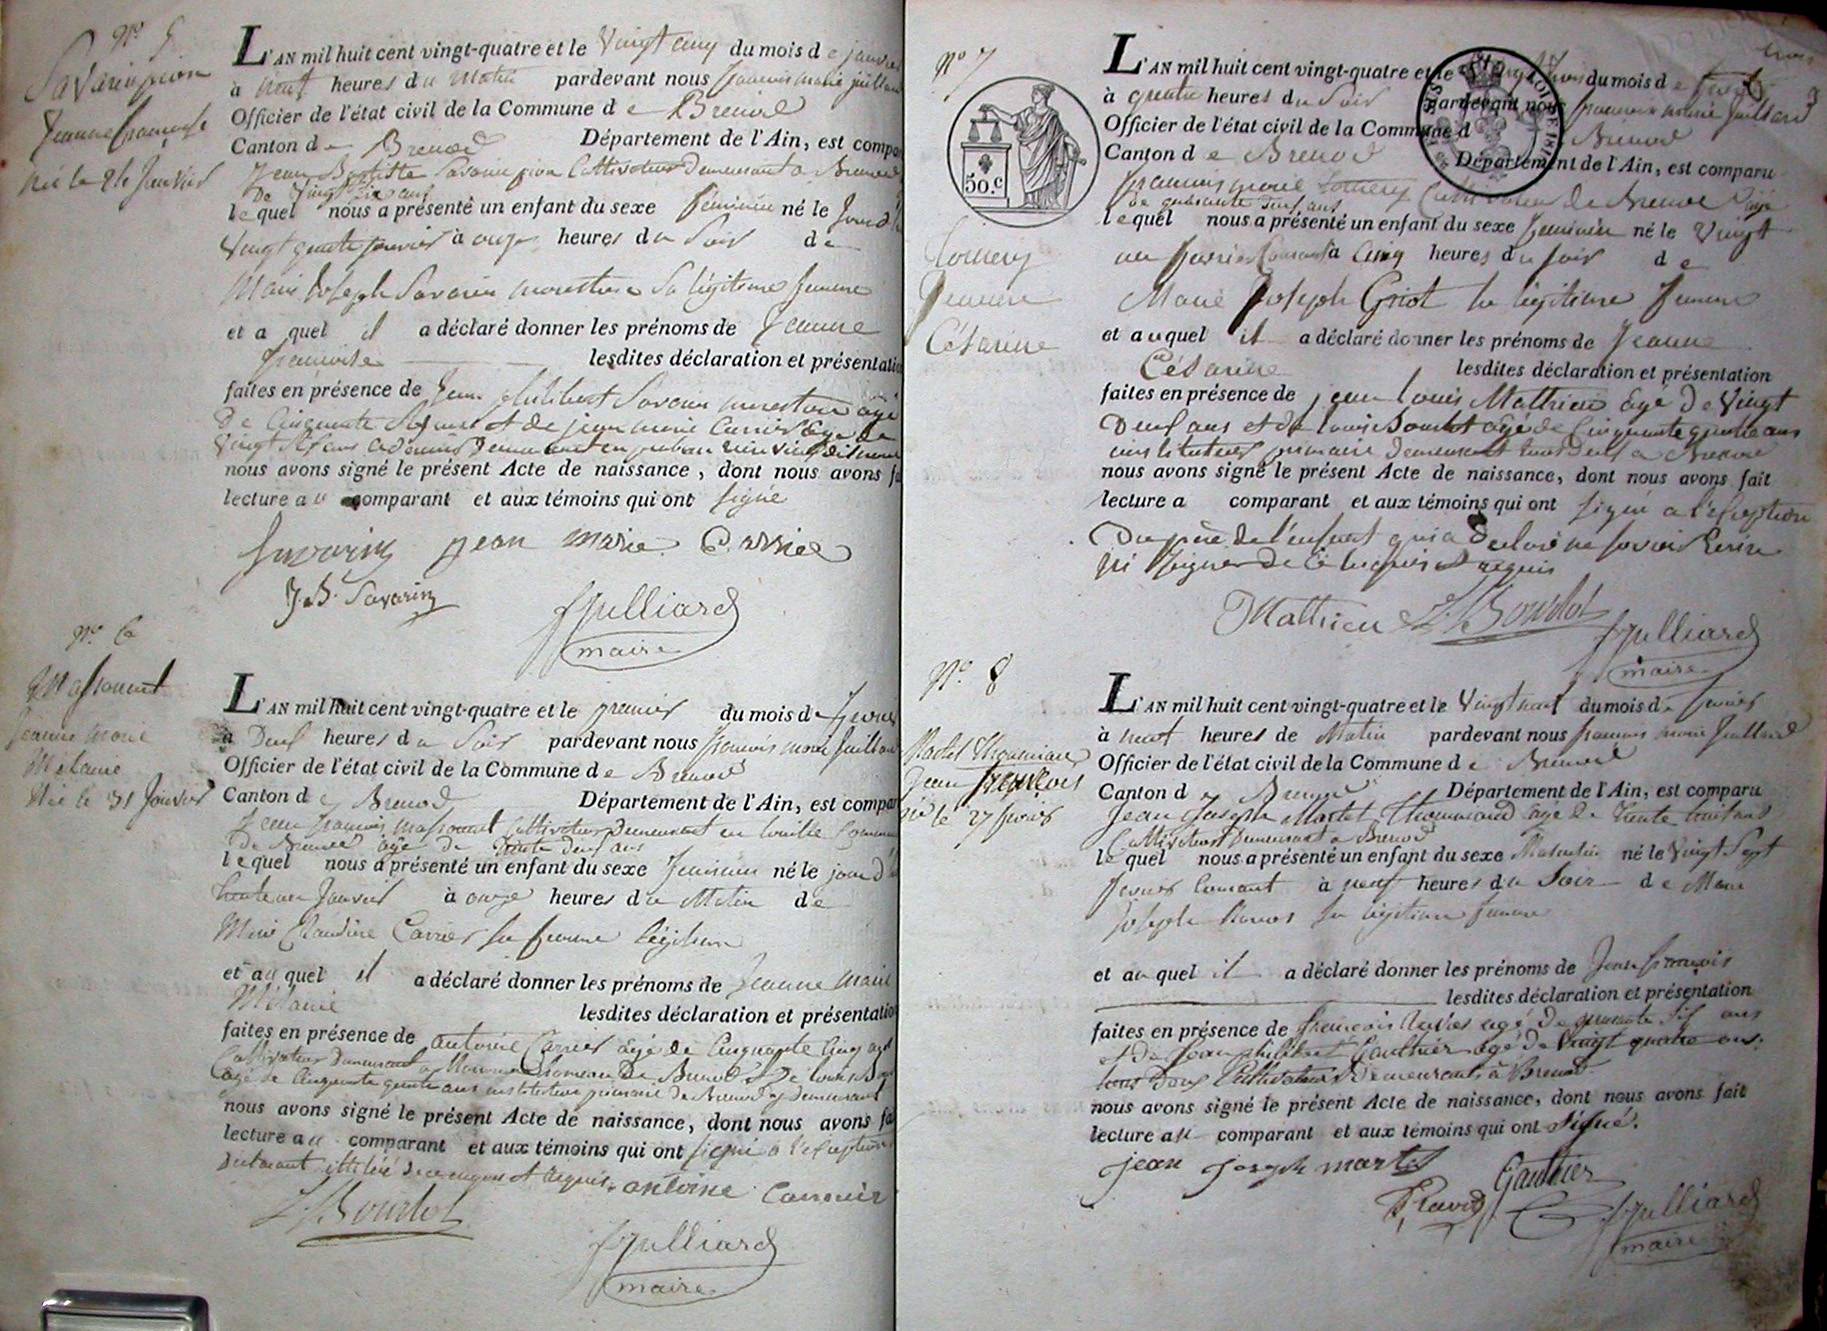 N.o 5
Savarin pion
Jeanne françoise
née le 24 Janvier
L'AN mil huit cent vingt-quatre et le Vingt cinq du mois de janvier
à neuf heures du Matin pardevant nous françois marie juilliard
Officier de l'état civil de la Commune de Brenod
Canton de Brenod Département de l'Ain, est compa
Jean Baptiste Savarin pion Cultivateur Demeurant a Brenod
De Vingt six ans
lequel nous a présenté un enfant du sexe féminin né le Jour d'
Vingt quatre janvier à onze heures du Soir de
Marie Joseph Savarin Sa légitime femme
et a quel il a déclaré donner les prénoms de Jeanne
françoise lesdites déclaration et présentatio
faites en présence de Jean philibert Savarin agé
De Cinquante ans et de jean marie Carrier agé de
Vingt
nous avons signé le présent Acte de naissance, dont nous avons fa
lecture au comparant et aux témoins qui ont signé
Savarin jean marie Carrier
J. B. Savarin
fJulliard
maire
N.o 6
Massonnet
Jeanne Marie
Mélanie
Née le 31 Janvier
L'AN mil huit cent vingt-quatre et le premier du mois de fevrier
à Deux heures du Soir pardevant nous françois marie Juilliard
Officier de l'état civil de la Commune de Brenod
Canton de Brenod Département de l'Ain, est compar
Jean françois Massonnet Cultivateur Demeurant en Commune
de Brenod agé de trente deux ans
lequel nous a présenté un enfant du sexe feminin né le jour d'
trente un Janvier à onze heures du Matin de
Marie Claudine Carrier sa femme légitime
et auquel il a déclaré donner les prénoms de Jeanne Marie
Mélanie lesdites déclaration et présentatio
faites en présence de antoine Carrier agé de Cinquante Cinq ans
Cultivateur Demeurant a Commune De Brenod et De louis Bourdot
agé de Cinquante quatre ans instituteur primaire de Brenod y demeurant
nous avons signé le présent Acte de naissance, dont nous avons fa
lecture au comparant et aux témoins qui ont signé a l'exception
de ce enquis et requis. antoine Carrier
L. Bourdot
fJulliard
maire
N.o 7
50.c
Jeanne
Césarine
L'AN mil huit cent vingt-quatre et le du mois de
à quatre heures du Soir pardevant nous françois marie Juilliard
Officier de l'état civil de la Commune d Brenod
Canton de Brenod Département de l'Ain, est comparu
françois marie Cultivateur de Brenod agé
de quarante deux ans
lequel nous a présenté un enfant du sexe feminin né le Vingt
un fevrier Courant à Cinq heures du soir de
Marie Joseph Griot sa légitime femme
et auquel il a déclaré donner les prénoms de Jeanne
Césarine lesdites déclaration et présentation
faites en présence de jean louis Mathieu agé de Vingt
Deux ans et de louis Bourdot agé de Cinquante quatre ans
instituteur primaire demeurant tous deux a Brenod
nous avons signé le présent Acte de naissance, dont nous avons fait
lecture a comparant et aux témoins qui ont signé a l'exception
Du père de l'enfant qui a Déclaré ne savoir Ecrire
ni signer de ce enquis et requis
Mathieu L. Bourdot
fJulliard
maire
N.o 8
Martel Thoumian
Jean françois
né le 27 fevrier
L'AN mil huit cent vingt-quatre et le Vingt neuf du mois de fevrier
à neuf heures de Matin pardevant nous françois marie Juilliard
Officier de l'état civil de la Commune de Brenod
Canton de Brenod Département de l'Ain, est comparu
Jean Joseph Martel agé de trente huit ans
Cultivateur Demeurant a Brenod
lequel nous a présenté un enfant du sexe Masculin né le Vingt Sept
fevrier Courant à neuf heures du Soir de Marie
Joseph sa légitime femme
et auquel il a déclaré donner les prénoms de Jean françois
lesdites déclaration et présentation
faites en présence de françois agé de quarante six ans
et de Jean philibert Gauthier agé de Vingt quatre ans,
tous Deux Cultivateurs Demeurants à Brenod
nous avons signé le présent Acte de naissance, dont nous avons fait
lecture au comparant et aux témoins qui ont Signé.
jean joseph martel
Gauthier
fJulliard
maire